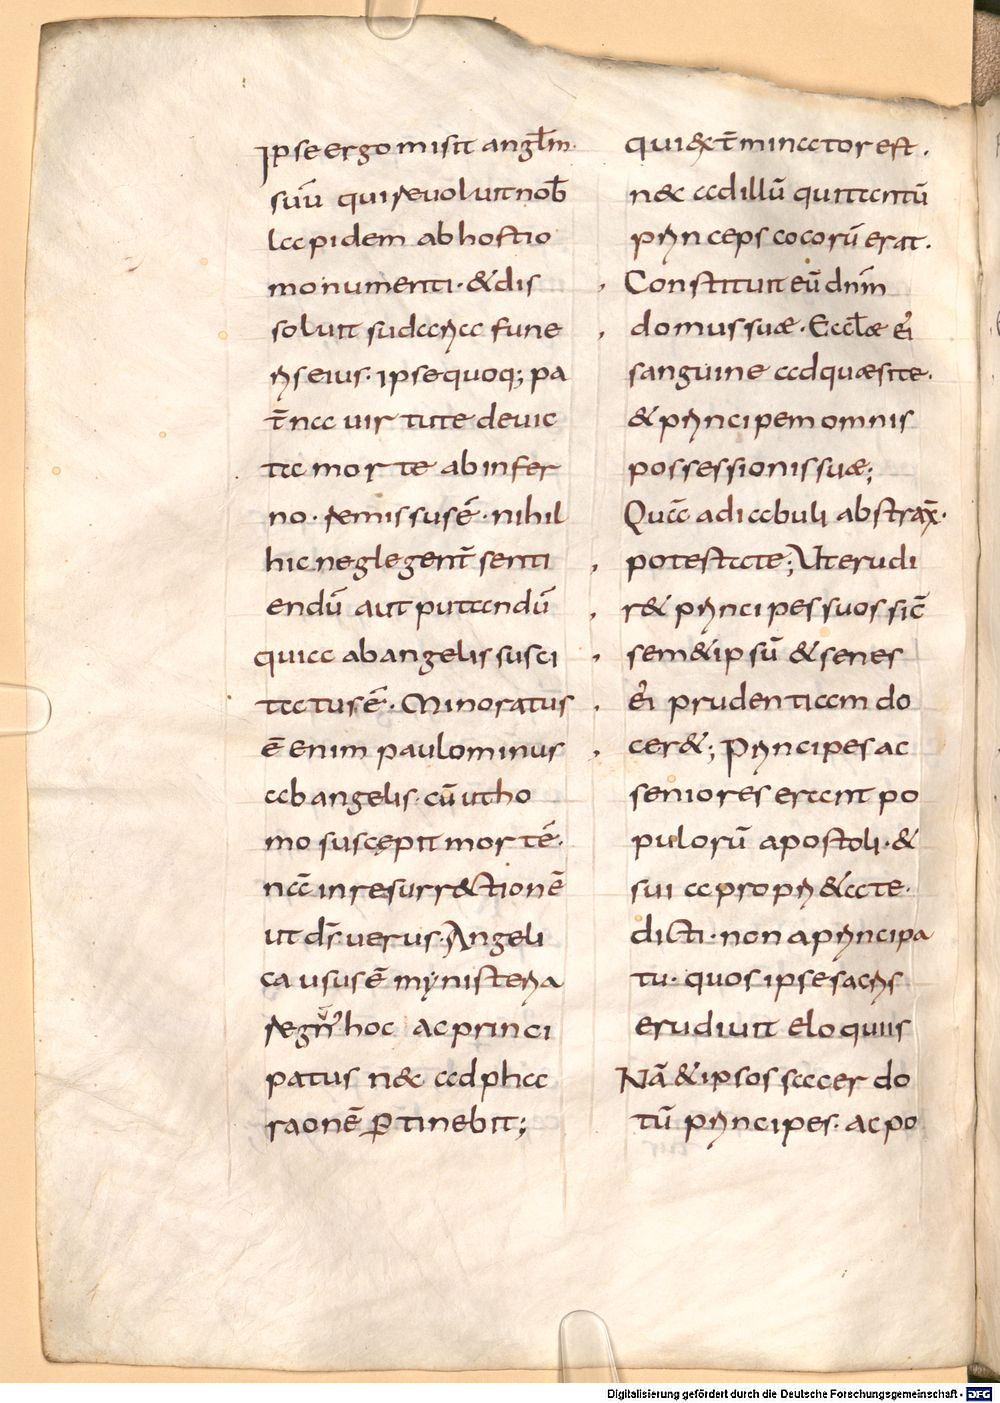 Ipse ergo misit angl̄m·
suū qui revoluit nob̄
lapidem ab hostio
monumenti· & dis
soluit sudaria fune
ris eius· ipse quoq; pa
t̄na uirtute deuic
ta morte ab infer
no· remissus ē· nihil
hic neglegent̄ senti
endū aut putandū
quia ab angelis susci
tatus ē· Minoratus
ē enim paulominus
ab angelis· cū ut ho
mo suscepit mortē·
nā in resurr&tionē
ut dr̄ uerus· Angeli
ca usus ē mynisteria
hoc ac princi
patus n& ad pha
raonē ꝑtinebit;
qui & t̄minator est.
n& ad illū qui tantū
princeps cocorū erat.
Constituit eū dnm̄
domus suæ· Eccl̄æ ei
sanguine adquæsite·
& principem omnis
possessionis suæ;
Quā a diabuli abstrax̄·
potestate; Ut erudi
r& principes suos sic̄
sem&ipsū & senes
ei prudentiam do
cer&; Principes ac
seniores erant po
pulorū apostoli· &
sui a propri&ate·
dicti· non a principa
tu· quos ipse sacris
erudiuit eloquiis
Nā & ipsos sacerdo
tū principes· ac po
Digitalisierung gefördert durch die Deutsche Forschungsgemeinschaft - DFG